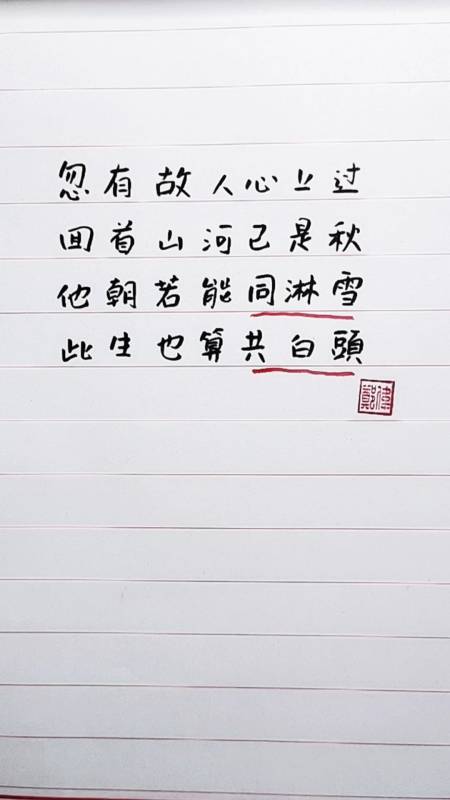 忽有故人心上过
回首山河已是秋
他朝若能同淋雪
此生也算共白頭